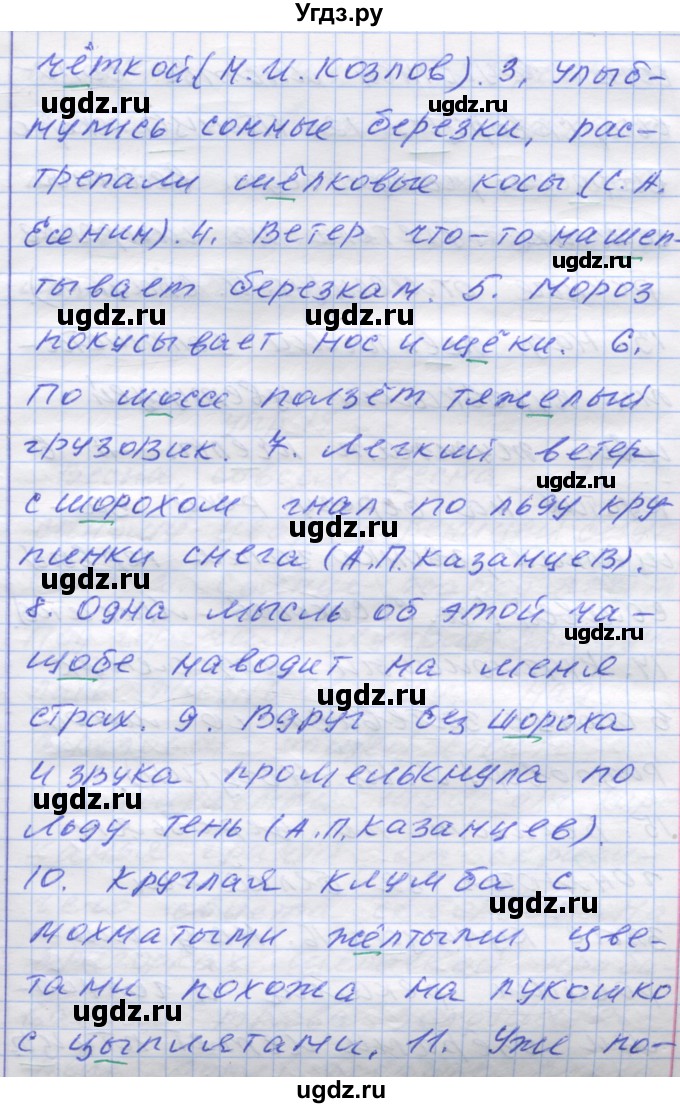 Угдз.ру
чёткой (М. И. Козлов). 3. Улыб-
ugdz.ru
ugdz.ru
нулись сонные берёзки, рас-
трепали шёлковые косы (С. А.
Есенин). 4. Ветер что-то нашеп-
ugdz.ru
тывает березкам. 5. Мороз
ugdz.ru
ugdz.ru
покусывает нос и щёки. 6.
По шоссе ползёт тяжелый
ugdz.ru
грузовик. 7. Легкий ветер
ugdz.ru
с шорохом гнал по льду кру-
ugdz.ru
пинки снега (А.П. Казанцев).
ugdz.ru
8. Одна мысль об этой ча-
ugdz.ru
щобе наводит на меня
ugdz.ru
страх. 9. Вдруг без шороха
ugdz.ru
и звука промелькнула по
ugdz.ru
льду тень (А.П. Казанцев).
10. Круглая клумба с
ugdz.ru
мохнатыми жёлтыми цве-
тами похожа на лукошко
ugdz.ru
с цыплятами. 11. Уже по-
ugdz.ru
ugdz.ru